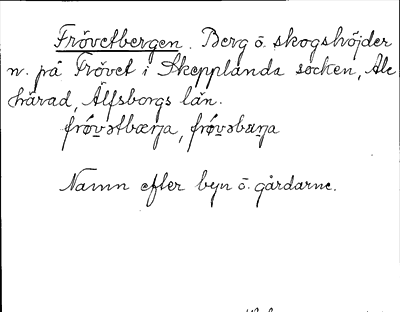 Frövetbergen. Berg o. skogshöjder
n. på Frövet i Skepplanda socken, Ale
härad, Älfsborgs län.
frǿvətbærja, frǿvəbærja
Namn efter byn o. gårdarne.